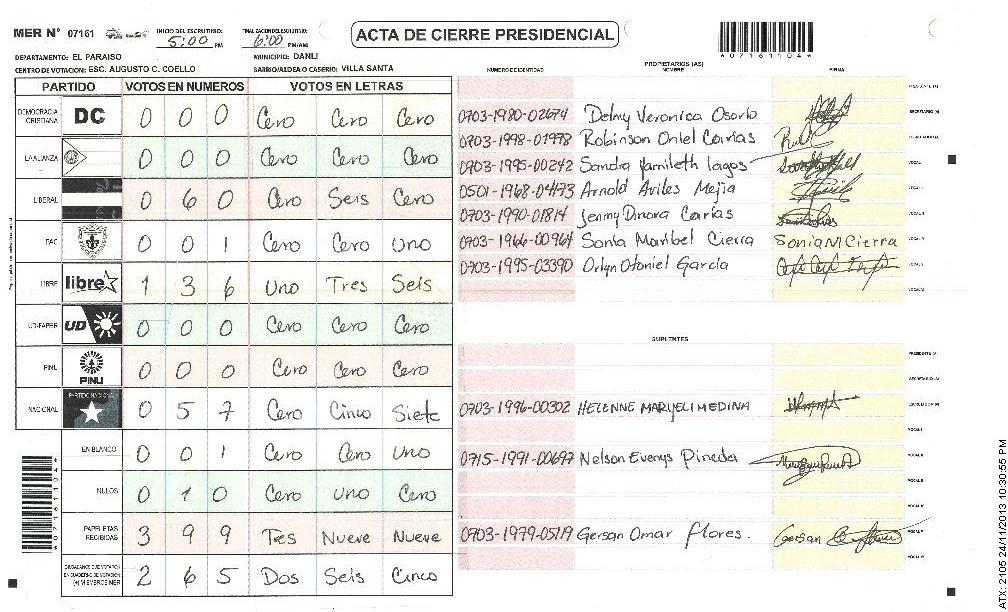 MER Nº 07161
INICIO DEL ESCRUTINIO: 5:00 PM
FINALIZACION DEL ESCRUTINIO: 6:00 PM/AM
ACTA DE CIERRE PRESIDENCIAL
*07161104*
DEPARTAMENTO: EL PARAISO MUNICIPIO: DANLI
CENTRO DE VOTACION: ESC. AUGUSTO C. COELLO BARRIO/ALDEA O CASERIO: VILLA SANTA
PARTIDO VOTOS EN NUMEROS VOTOS EN LETRAS
DEMOCRACIA CRISTIANA DC 0 0 0 Cero Cero Cero
LA ALIANZA 0 0 0 Cero Cero Cero
LIBERAL 0 6 0 Cero Seis Cero
PAC 0 0 1 Cero Cero Uno
LIBRE libre 1 3 6 Uno Tres Seis
UD-FAPER UD 0 0 0 Cero Cero Cero
PINU PINU 0 0 0 Cero Cero Cero
NACIONAL PARTIDO NACIONAL 0 5 7 Cero Cinco Siete
EN BLANCO 0 0 1 Cero Cero Uno
NULOS 0 1 0 Cero Uno Cero
PAPELETAS RECIBIDAS 3 9 9 Tres Nueve Nueve
CIUDADANOS QUE VOTARON EN CUADERNO DE VOTACION (+) MIEMBROS MER 2 6 5 Dos Seis Cinco
PROPIETARIOS (AS)
NUMERO DE IDENTIDAD NOMBRE FIRMA
0703-1980-02674 Delmy Veronica Osorto SECRETARIO (A)
0703-1998-01978 Robinson Oniel Carías
0703-1995-00242 Sandra Yamileth lagos
0501-1968-04473 Arnold Aviles Mejia
0703-1990-01814 Jenmy Dinora Carías
0703-1966-00964 Sonia Maribel Cierra Sonia M Cierra
0703-1995-03390 Orlyn Otoniel García
SUPLENTES
PRESIDENTE (A)
SECRETARIO (A)
0703-1996-00302 HELENNE MARYELI MEDINA ESCRUTADOR (A)
0715-1991-00697 Nelson Evenys Pineda
0703-1979-05119 Gersan Omar flores. Gersan
*07161104*
ATX: 2105 24/11/2013 10:30:55 PM